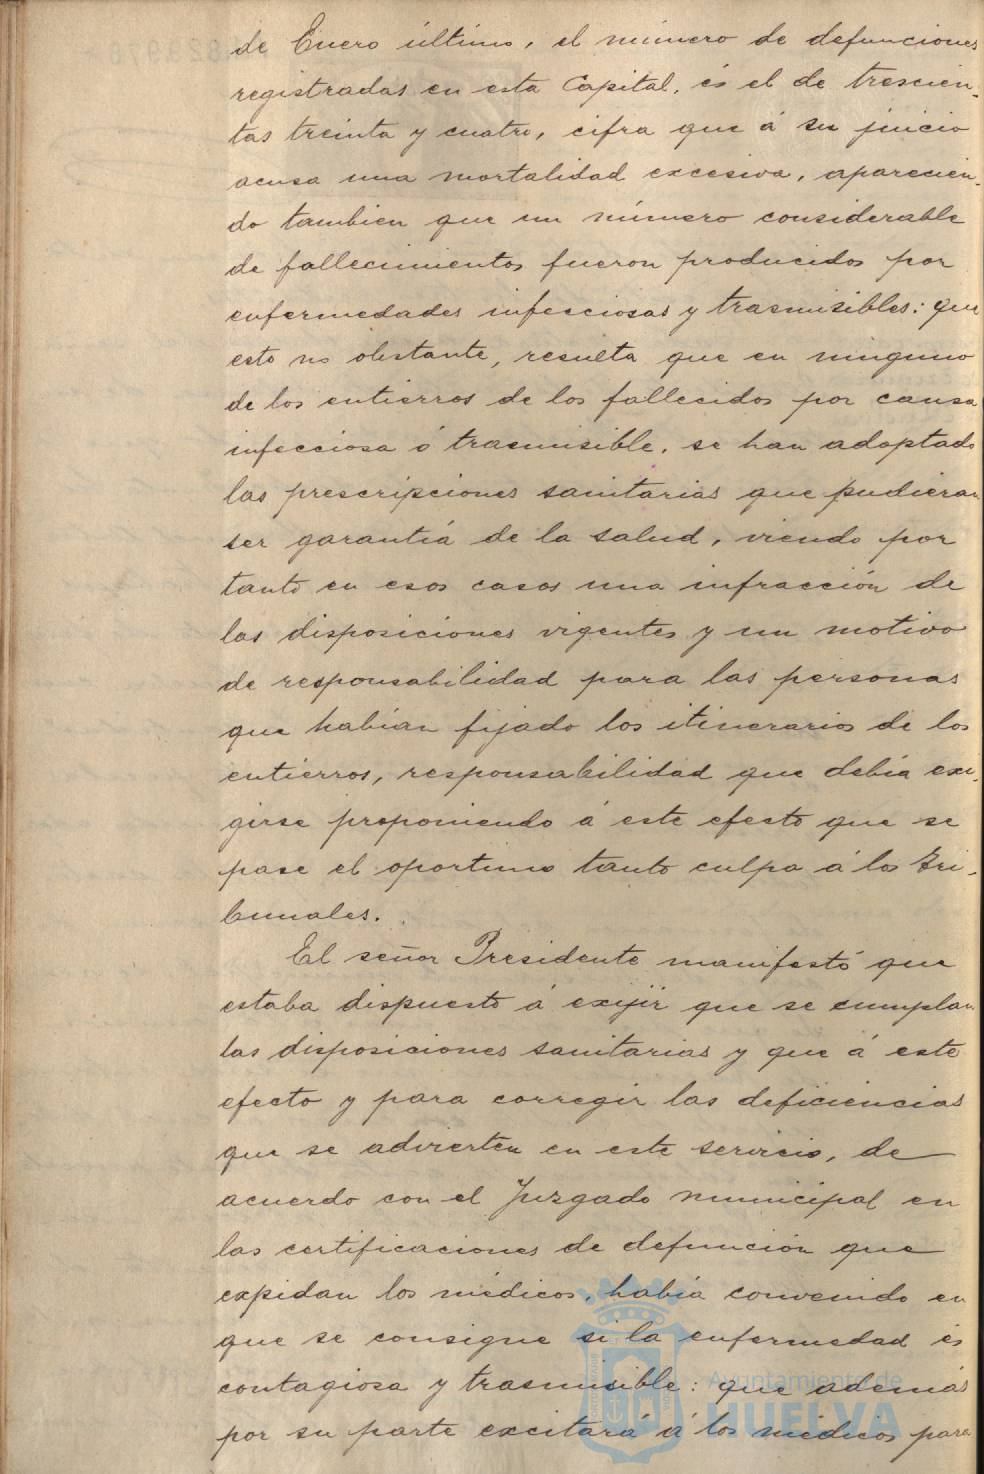 de Enero último, el número de defunciones
registradas en esta Capital, és el de trescien-
tas treinta y cuatro, cifra que á su juicio
acusa una mortalidad excesiva, aparecien-
do tambien que un número considerable
de fallecimientos fueron producidos por
enfermedades infecciosas y trasmisibles: que
esto no obstante, resulta que en ninguno
de los entierros de los fallecidos por causa
infecciosa ó trasmisible, se han adoptado
las prescripciones sanitarias que pudieran
ser garantiá de la salud, viendo por
tanto en esos casos una infracción de
las disposiciones vigentes y un motivo
de responsabilidad para las personas
que habían fijado los itinerarios de los
entierros, responsabilidad que debía exi-
girse proponiendo á este efecto que se
pase el oportuno tanto culpa á los tri-
bunales.
El señor Presidente manifestó que
estaba dispuesto á exijir que se cumplan
las disposiciones sanitarias y que á este
efecto y para corregir las deficiencias
que se advierten en este servicio, de
acuerdo con el Juzgado municipal en
las certificaciones de defunción que
expidan los médicos, había convenido en
que se consigne si la enfermedad és
contagiosa y trasmisible: que además
por su parte excitará á los médicos para
Ayuntamiento de
HUELVA